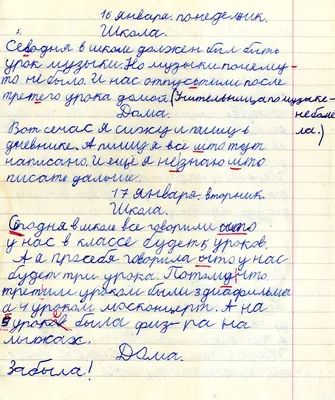 16 января понедельник.
Школа.
Севодня в школе должен был быть
урок музыки. Но музыки почему-
то не было. И нас отпусьтили после
третего урока домой (Учительница по музыке-
Дома. не боле
Вот сечас я сижу и пишу в ла.)
дневнике. А пишу я всё што тут
написано. И ещё я незнаю што
писать дальше.
17 января, вторник.
Школа.
Сегодня в школе все говорили што
у нас в классе будет 5 уроков.
А а про себя говорила што у нас
будет три урока. Потому что
третим уроком были 3 диафильма
а 4 уроком москонцерт. А на
5 уроков была физ-ра на
лыжах.
Дома.
Забыла!